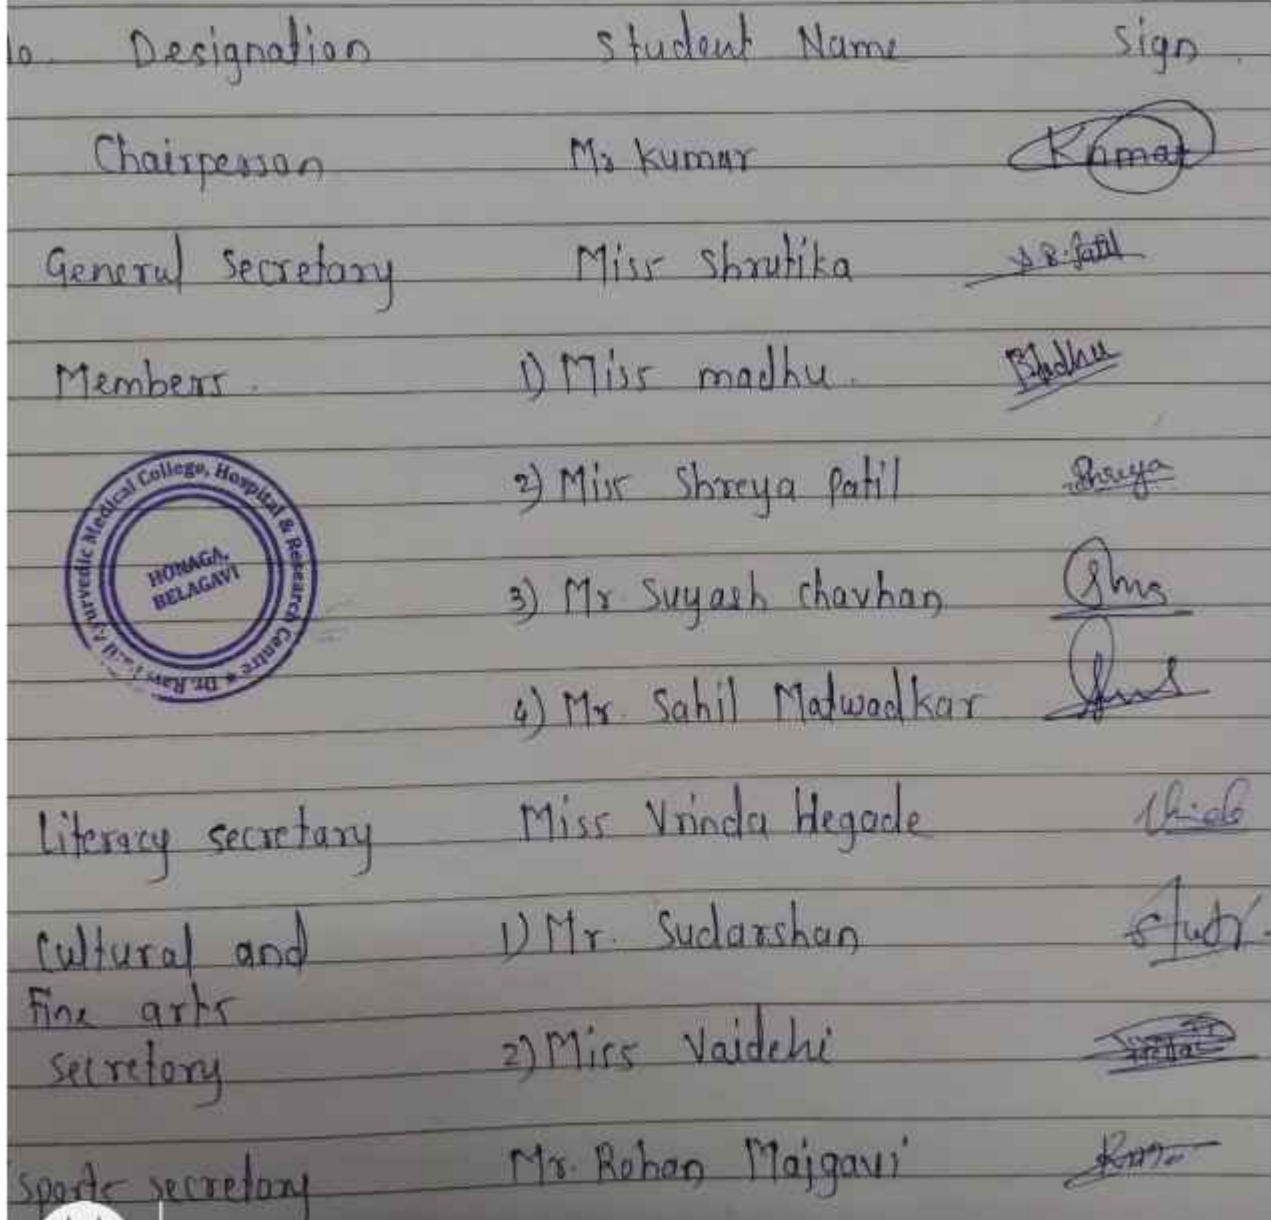 Designation Student Name Sign
Chairperson Mr Kumar Kumar
General secretary Miss Shrutika S R. Patil
Members. 1) Miss madhu. Madhu
2) Miss Shreya Patil Shreya
3) Mr Suyash chavhan
4) Mr. Sahil Matwadkar
Literacy secretary Miss Vrinda Hegade
Cultural and 1) Mr. Sudarshan
Fine arts
secretory 2) Miss Vaidehi
Sports secretary Mr. Rohan Majgavi
Dr. Ravi Patil Ayurvedic Medical College, Hospital & Research Centre
HONAGA,
BELAGAVI